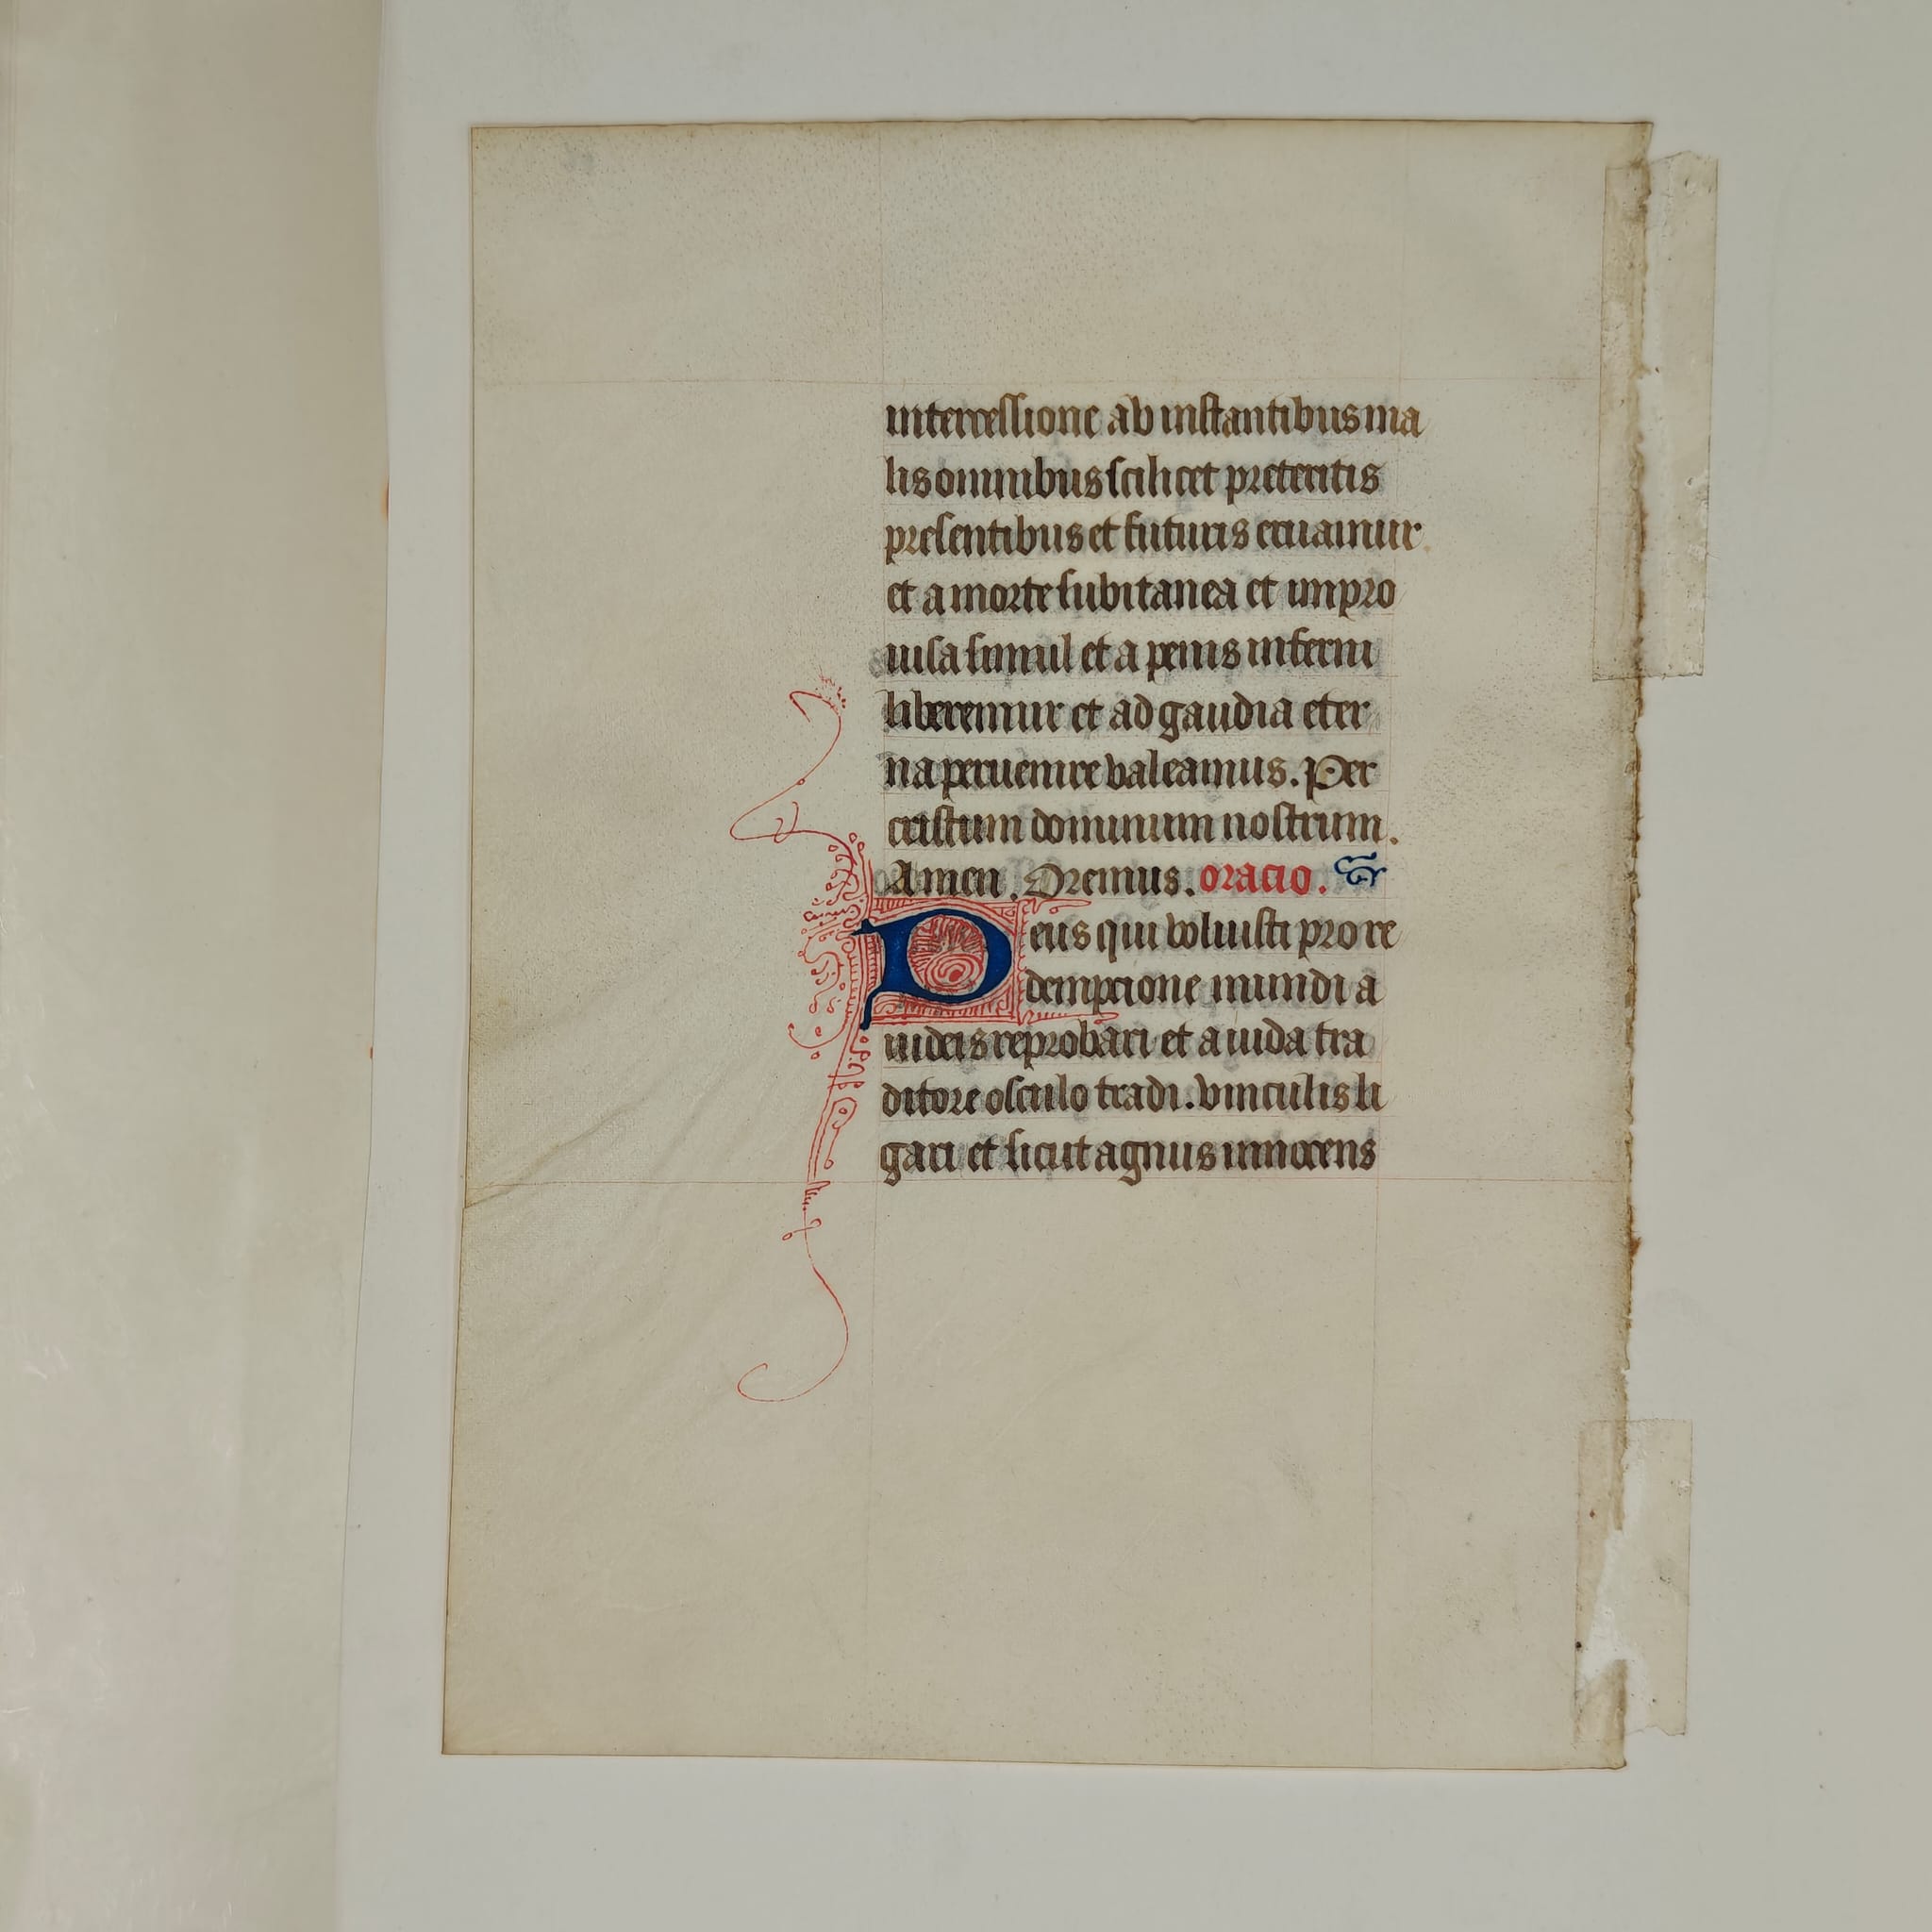 intercessione ab instantibus ma
lis omnibus scilicet preteritis
presentibus et futuris eruamur.
et a morte subitanea et impro
uisa simul et a penis inferni
liberemur et ad gaudia eter
na peruenire valeamus. Per
cristum dominum nostrum.
Amen. Oremus. oracio.
Deus qui voluisti pro re
dempcione mundi a
iudeis reprobari et a iuda tra
ditore osculo tradi. vinculis li
gari et sicut agnus innocens